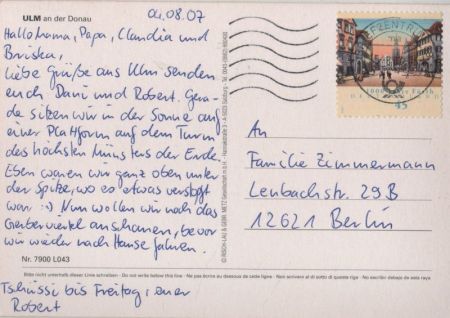 ULM an der Donau
04.08.07
Hallo Mama, Papa, Claudia und
liebe Grüße aus Ulm senden
euch Dani und Robert. Gera-
de sitzen wir in der Sonne auf
einer Plattform auf dem Turm
des höchsten Münsters der Erde.
Eben waren wir ganz oben unter
der Spitze, wo es etwas
war :-) Nun wollen wir noch das
Gerberviertel anschauen, bevor
wir wieder nach Hause fahren.
Nr. 7900 L043
Bitte nicht unterhalb dieser Linie schreiben · Do not write below this line · Ne pas écrire au dessous de cette ligne · Non scrivere al di sotto di questa riga · No escribir debajo de esta raya
Tschüssi bis Freitag, euer
Robert
An
Familie Zimmermann
Lenbachstr. 29B
12621 Berlin
1000 Jahre Fürth
DEUTSCHLAND
45
BRIEFZENTRUM